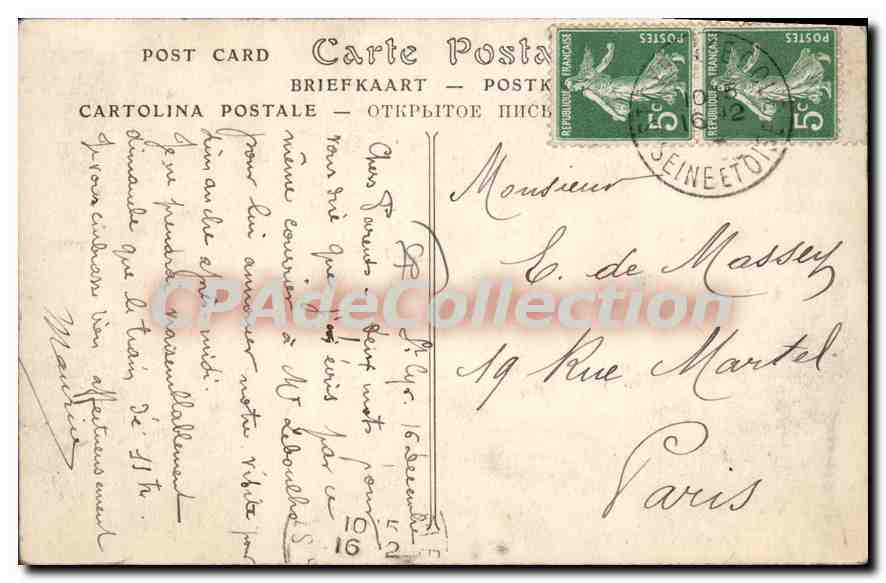 POST CARD Carte Posta
BRIEFKAART — POSTK
CARTOLINA POSTALE — ОТКРЫТОЕ ПИСЬ
REPUBLIQUE FRANÇAISE POSTES 5c
REPUBLIQUE FRANÇAISE POSTES 5c
16 12
SEINE ET OISE
Monsieur
E. de Massey
19 Rue Martel
Paris
St Cyr. 16 Décembre
Chers Parents - deux mots pour
vous dire que j'écris par ce
même courrier à Mr
pour lui annoncer notre visite pour
dimanche après midi.
Je ne prendrai vraisemblablement
dimanche que le train de 11 h.
Je vous embrasse bien affectueusement
Maurice
10
16 12
CPAdeCollection.com